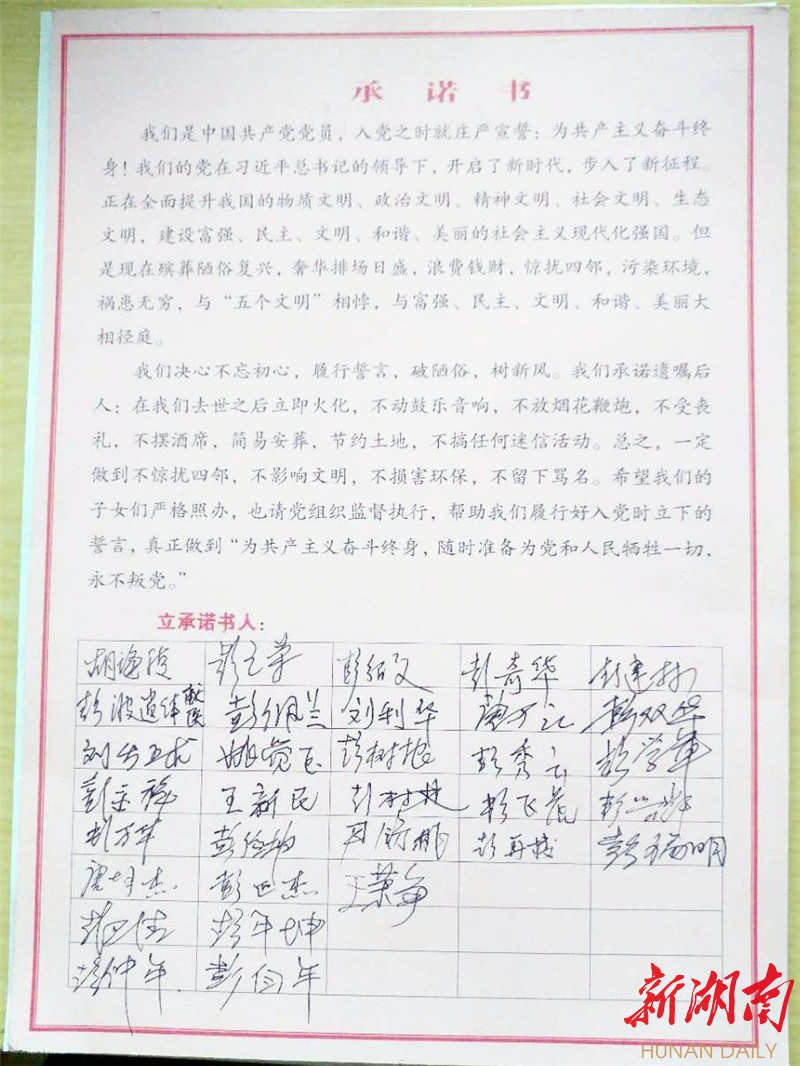 承诺书
我们是中国共产党党员，入党之时就庄严宣誓：为共产主义奋斗终
身！我们的党在习近平总书记的领导下，开启了新时代，步入了新征程。
正在全面提升我国的物质文明、政治文明、精神文明、社会文明、生态
文明，建设富强、民主、文明、和谐、美丽的社会主义现代化强国。但
是现在殡葬陋俗复兴，奢华排场日盛，浪费钱财，惊扰四邻，污染环境，
祸患无穷，与“五个文明”相悖，与富强、民主、文明、和谐、美丽大
相径庭。
我们决心不忘初心，履行誓言，破陋俗，树新风。我们承诺遗嘱后
人：在我们去世之后立即火化，不动鼓乐音响，不放烟花鞭炮，不受丧
礼，不摆酒席，简易安葬，节约土地，不搞任何迷信活动。总之，一定
做到不惊扰四邻，不影响文明，不损害环保，不留下骂名。希望我们的
子女们严格照办，也请党组织监督执行，帮助我们履行好入党时立下的
誓言，真正做到“为共产主义奋斗终身，随时准备为党和人民牺牲一切，
永不叛党。”
立承诺书人：
彭奇华
刘利华 彭双华
彭树 彭秀云 彭学军
王新民
彭再
彭年坤
彭仲年 彭伯年
新湖南
HUNAN DAILY